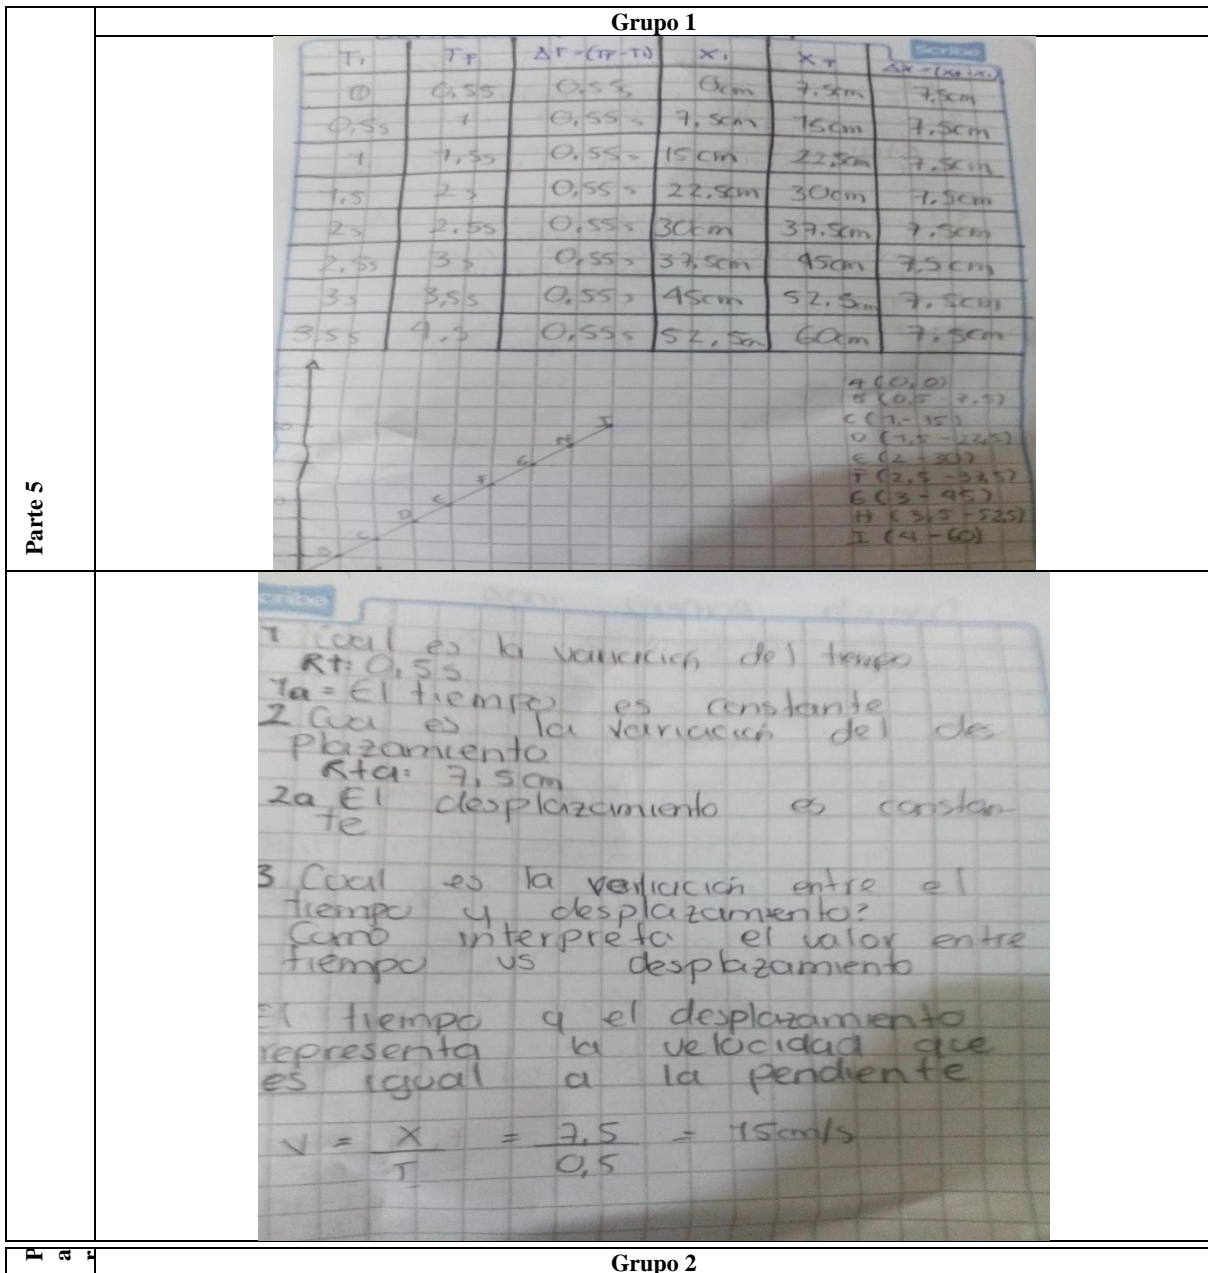 Grupo 1
Parte 5
Scribe
Ti TF ΔT=(TF-Ti) Xi XF ΔX=(XF-Xi)
0 0,5s 0,5s 0cm 7.5cm 7,5cm
0,5s 1 0,5s 7,5cm 15cm 7.5cm
1 1,5s 0,5s 15cm 22,5cm 7.5cm
1,5 2s 0,5s 22,5cm 30cm 7.5cm
2s 2,5s 0,5s 30cm 37.5cm 7.5cm
2,5s 3s 0,5s 37,5cm 45cm 7,5cm
3s 3,5s 0,5s 45cm 52.5cm 7.5cm
3,5s 4.s 0,5s 52,5cm 60cm 7.5cm
A (0,0)
B (0,5 - 7.5)
C (1 - 15)
D (1,5 - 22,5)
E (2 - 30)
F (2,5 - 37,5)
G (3 - 45)
H (3,5 - 52,5)
I (4 - 60)
I
H
G
F
E
D
C
B
cribe
1 Cual es la variacion del tiempo
Rt: 0,5s
1a = El tiempo es constante
2 Cual es la variación del des
plazamiento
Rta: 7,5cm
2a El desplazamiento es constan
te
3 Cual es la variación entre el
tiempo y desplazamiento?
Como interpreta el valor entre
tiempo vs desplazamiento
El tiempo y el desplazamiento
representa la velocidad que
es igual a la pendiente
V = X / T = 7,5 / 0,5 = 15cm/s
Par
Grupo 2